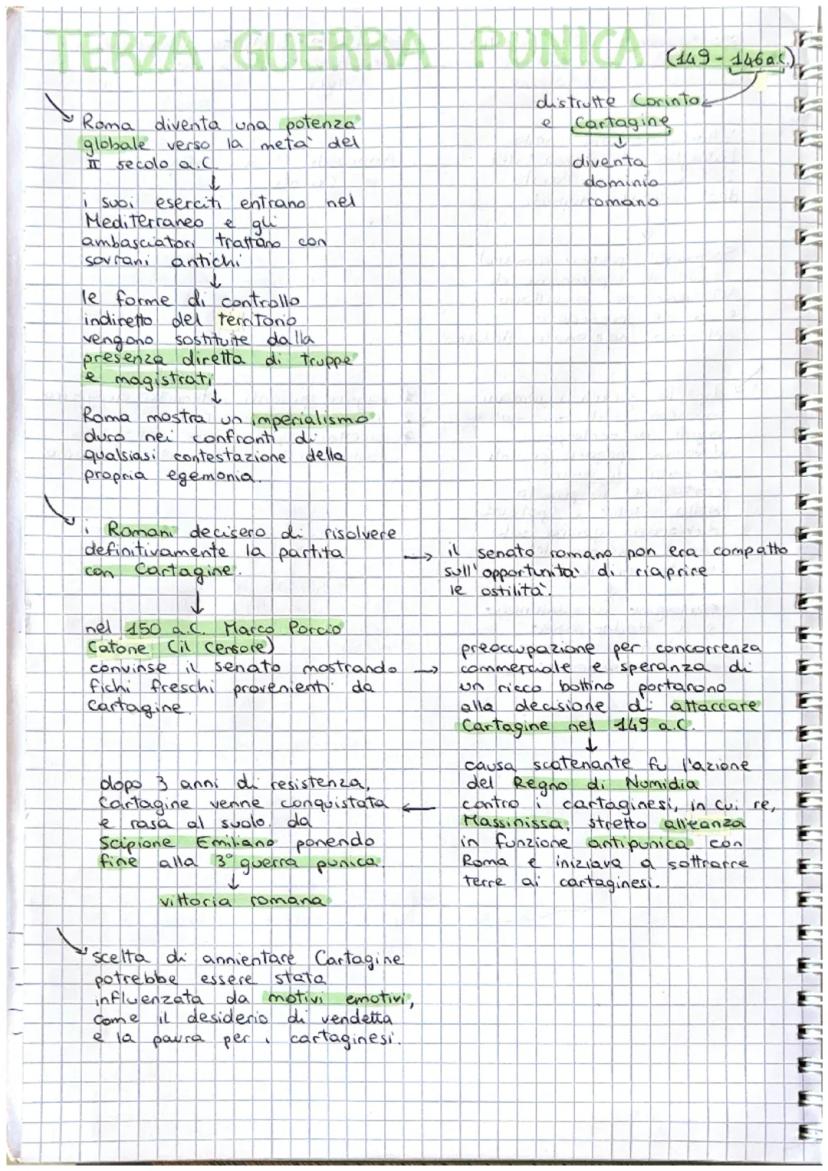 TERZA GUERRA PUNICA (149-146 a.C.)
distrutte Corinto
e Cartagine
↓
diventa
dominio
romano
Roma diventa una potenza
globale verso la metà del
II secolo a.C.
↓
i suoi eserciti entrano nel
Mediterraneo e gli
ambasciatori trattano con
sovrani antichi
↓
le forme di controllo
indiretto del territorio
vengono sostituite dalla
presenza diretta di truppe
e magistrati
↓
Roma mostra un imperialismo
duro nei confronti di
qualsiasi contestazione della
propria egemonia.
i Romani decisero di risolvere
definitivamente la partita
con Cartagine.
→ il senato romano non era compatto
sull'opportunità di riaprire
le ostilità.
↓
nel 150 a.C. Marco Porcio
Catone (il Censore)
convinse il senato mostrando →
fichi freschi provenienti da
Cartagine.
preoccupazione per concorrenza
commerciale e speranza di
un ricco bottino portarono
alla decisione di attaccare
Cartagine nel 149 a.C.
↓
causa scatenante fu l'azione
del Regno di Numidia
contro i cartaginesi, in cui re,
Massinissa, stretto alleanza
in funzione antipunica con
Roma e iniziava a sottrarre
terre ai cartaginesi.
dopo 3 anni di resistenza,
Cartagine venne conquistata ←
e rasa al suolo. da
Scipione Emiliano ponendo
fine alla 3° guerra punica.
↓
vittoria romana
scelta di annientare Cartagine
potrebbe essere stata
influenzata da motivi emotivi,
come il desiderio di vendetta
e la paura per i cartaginesi.